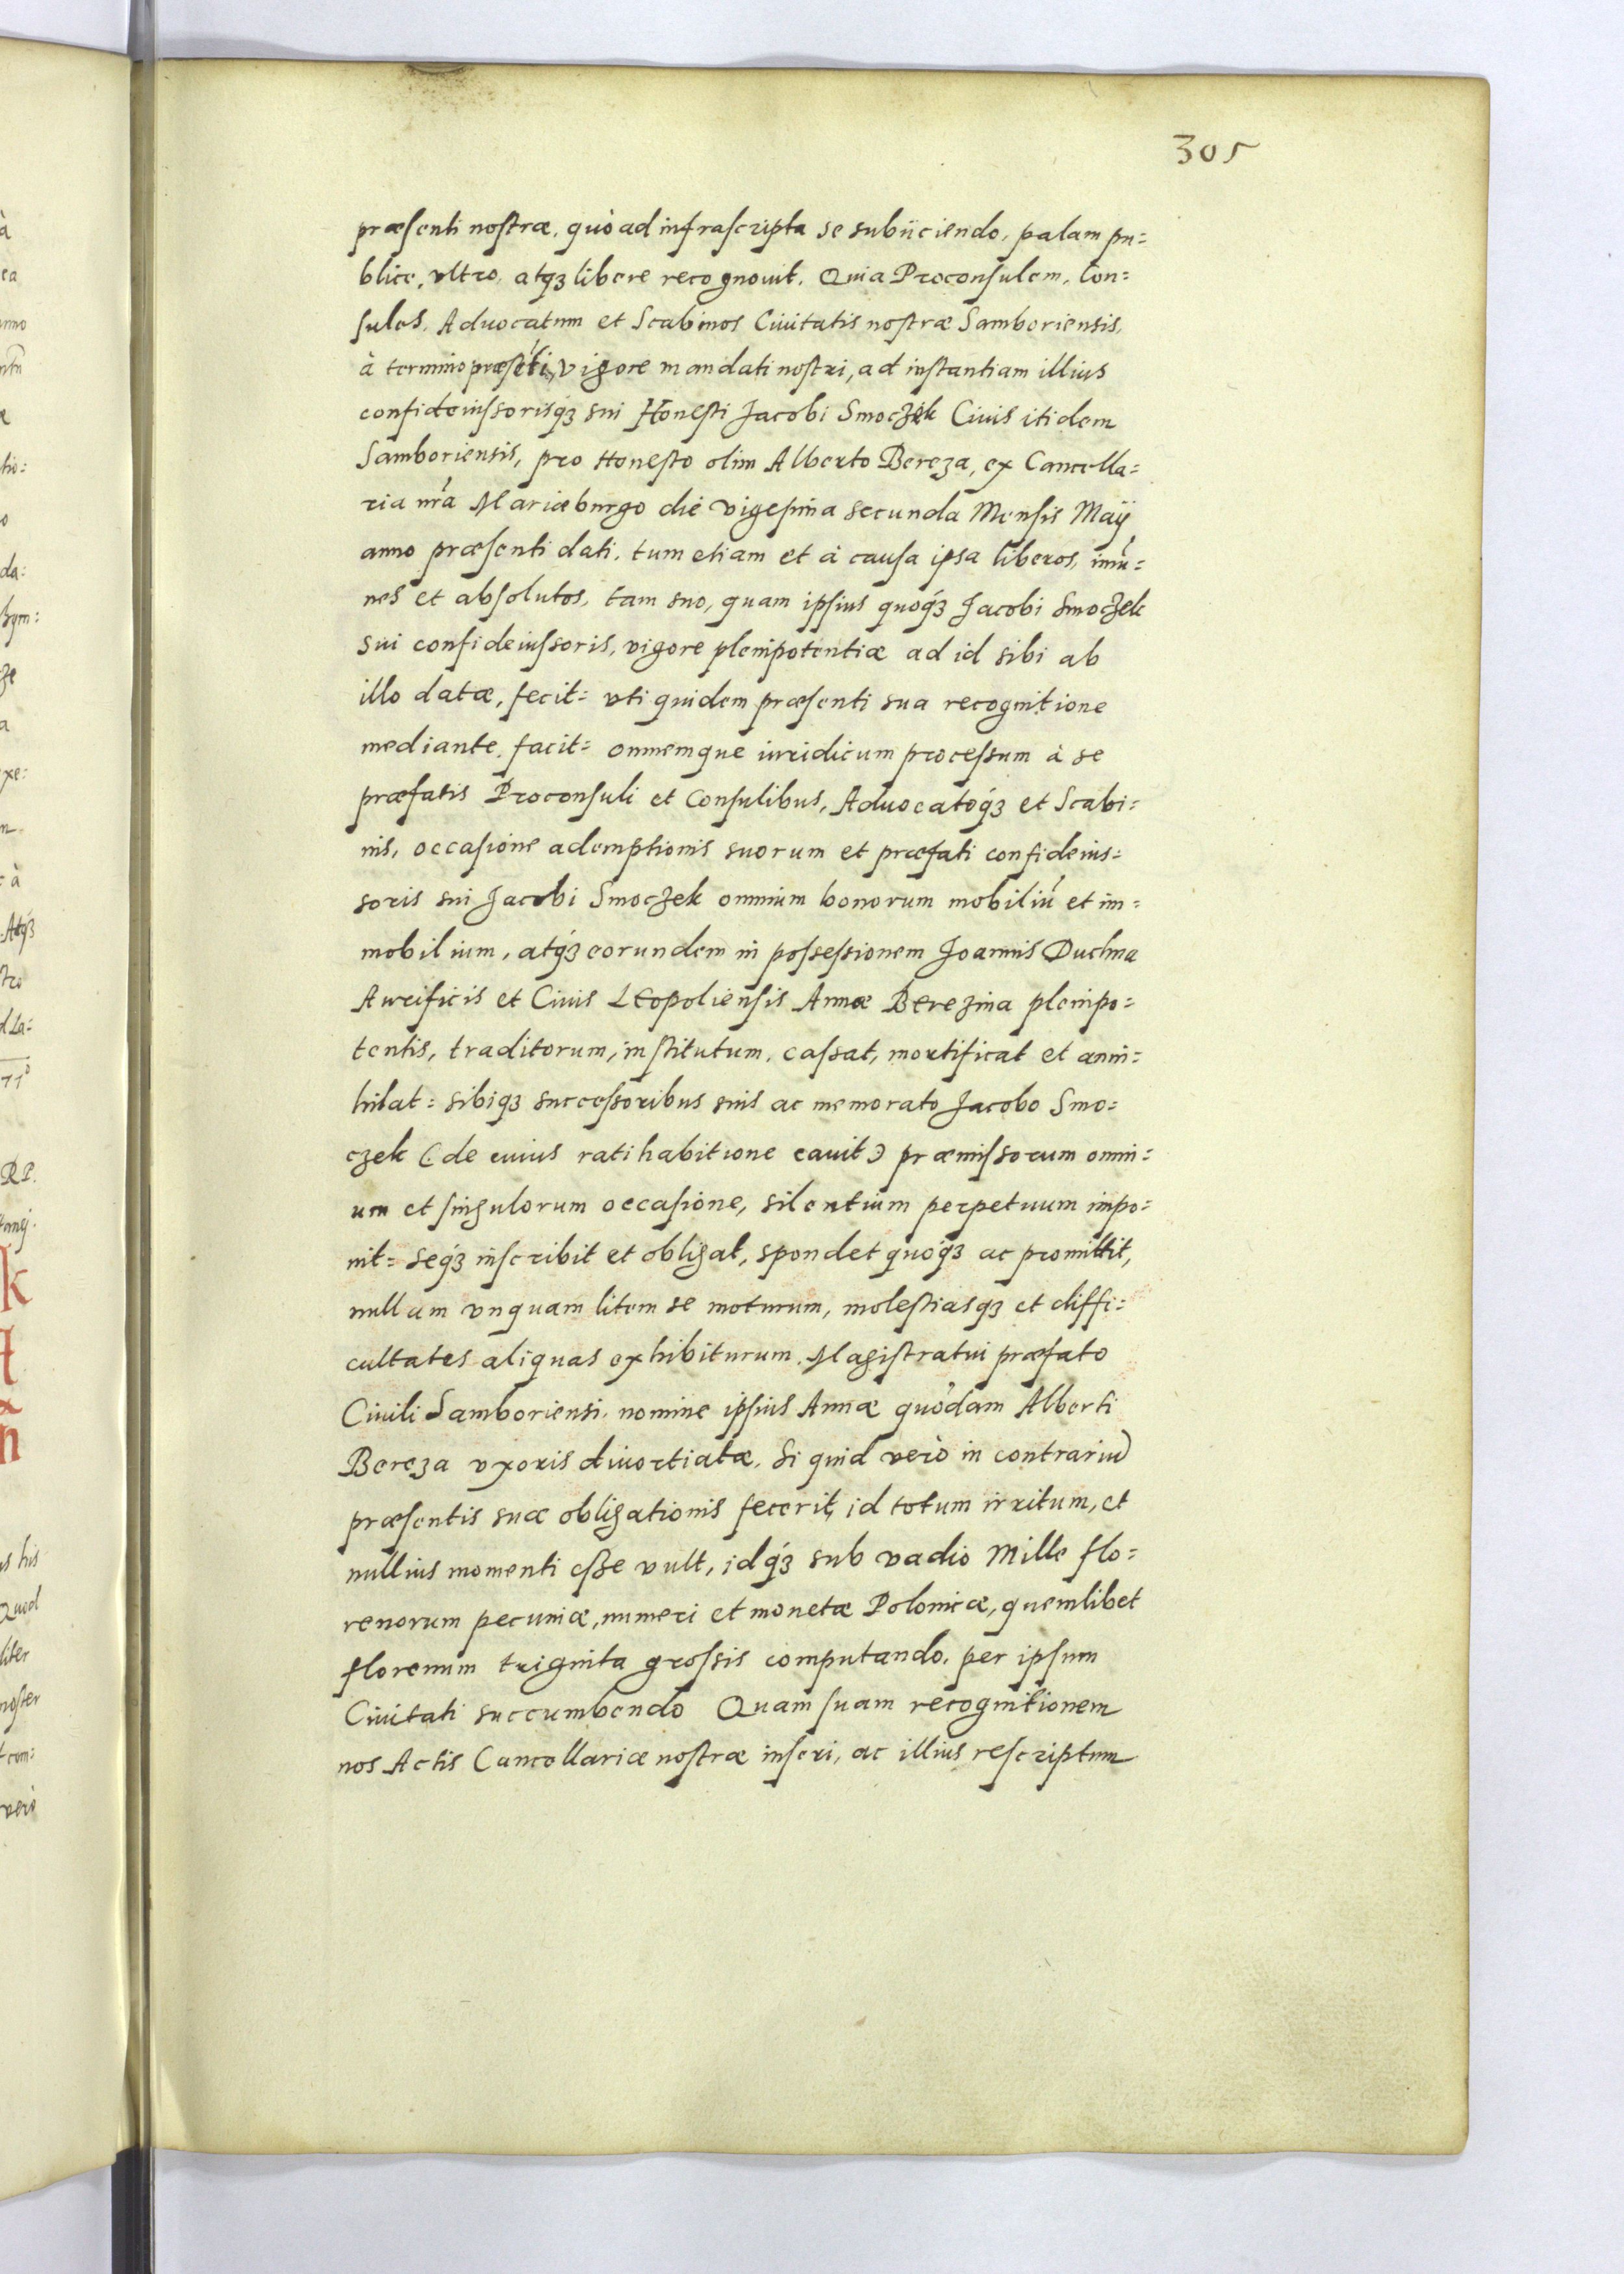 305
præsenti nostræ, quò ad infrascripta se subiiciendo, palam pu=
blice, vltro, atqꝫ libere recognouit. Quia Proconsulem, Con=
sules, Aduocatum et Scabinos Ciuitatis nostræ Samboriensis,
à termino præsēti, vigore mandati nostri, ad instantiam illius
confideiussorisqꝫ sui Honesti Jacobi Smoczek Ciuis itidem
Samboriensis, pro Honesto olim Alberto Bereza, ex Cancella=
ria nr̃a Mariæburgo die vigesima secunda Mensis Maÿ
anno præsenti dati, tum etiam et à causa ipsa liberos, imũ=
nes et absolutos, tam suo, quam ipsius quoqꝫ Jacobi Smoczek
sui confideiussoris, vigore plenipotentiæ ad id sibi ab
illo datæ, fecit= vti quidem præsenti sua recognitione
mediante, facit= omnemque iuridicum processum à se
præfatis Proconsuli et Consulibus, Aduocatoqꝫ et Scabi=
nis, occasione ademptionis suorum et præfati confideius=
soris sui Jacobi Smoczek omnium bonorum mobiliũ et im=
mobilium, atqꝫ eorundem in possessionem Joannis Duchna
Aurificis et Ciuis Leopoliensis Annæ Berezina plenipo=
tentis, traditorum, institutum, cassat, mortificat et anni=
hilat= sibiqꝫ successoribus suis ac memorato Jacobo Smo=
czek (de cuius ratihabitione cauit) præmissorum omni=
um et singulorum occasione, silentium perpetuum impo=
nit= seqꝫ inscribit et obligat, spondet quoqꝫ ac promittit,
nullam vnquam litem se moturum, molestiasqꝫ et diffi=
cultates aliquas exhibiturum. Magistratui præfato
Ciuili Samboriensi, nomine ipsius Annæ quōdam Alberti
Bereza vxoris diuortiatæ. Si quid verò in contrariũ
præsentis suæ obligationis fecerit, id totum irritum, et
nullius momenti esse vult, idqꝫ sub vadio Mille flo=
renorum pecuniæ, numeri et monetæ Polonicæ, quemlibet
florenum triginta grossis computando, per ipsum
Ciuitati succumbendo Quam suam recognitionem
nos Actis Cancellariæ nostræ inseri, ac illius rescriptum